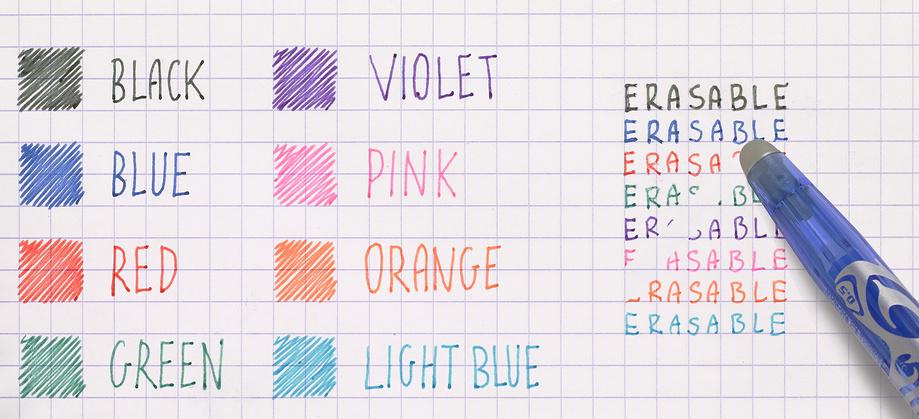 BLACK
BLUE
RED
GREEN
VIOLET
PINK
ORANGE
LIGHT BLUE
ERASABLE
ERASABLE
ERASA
ERAS BL
ER ABL
ASABLE
RASABLE
ERASABLE
0.5